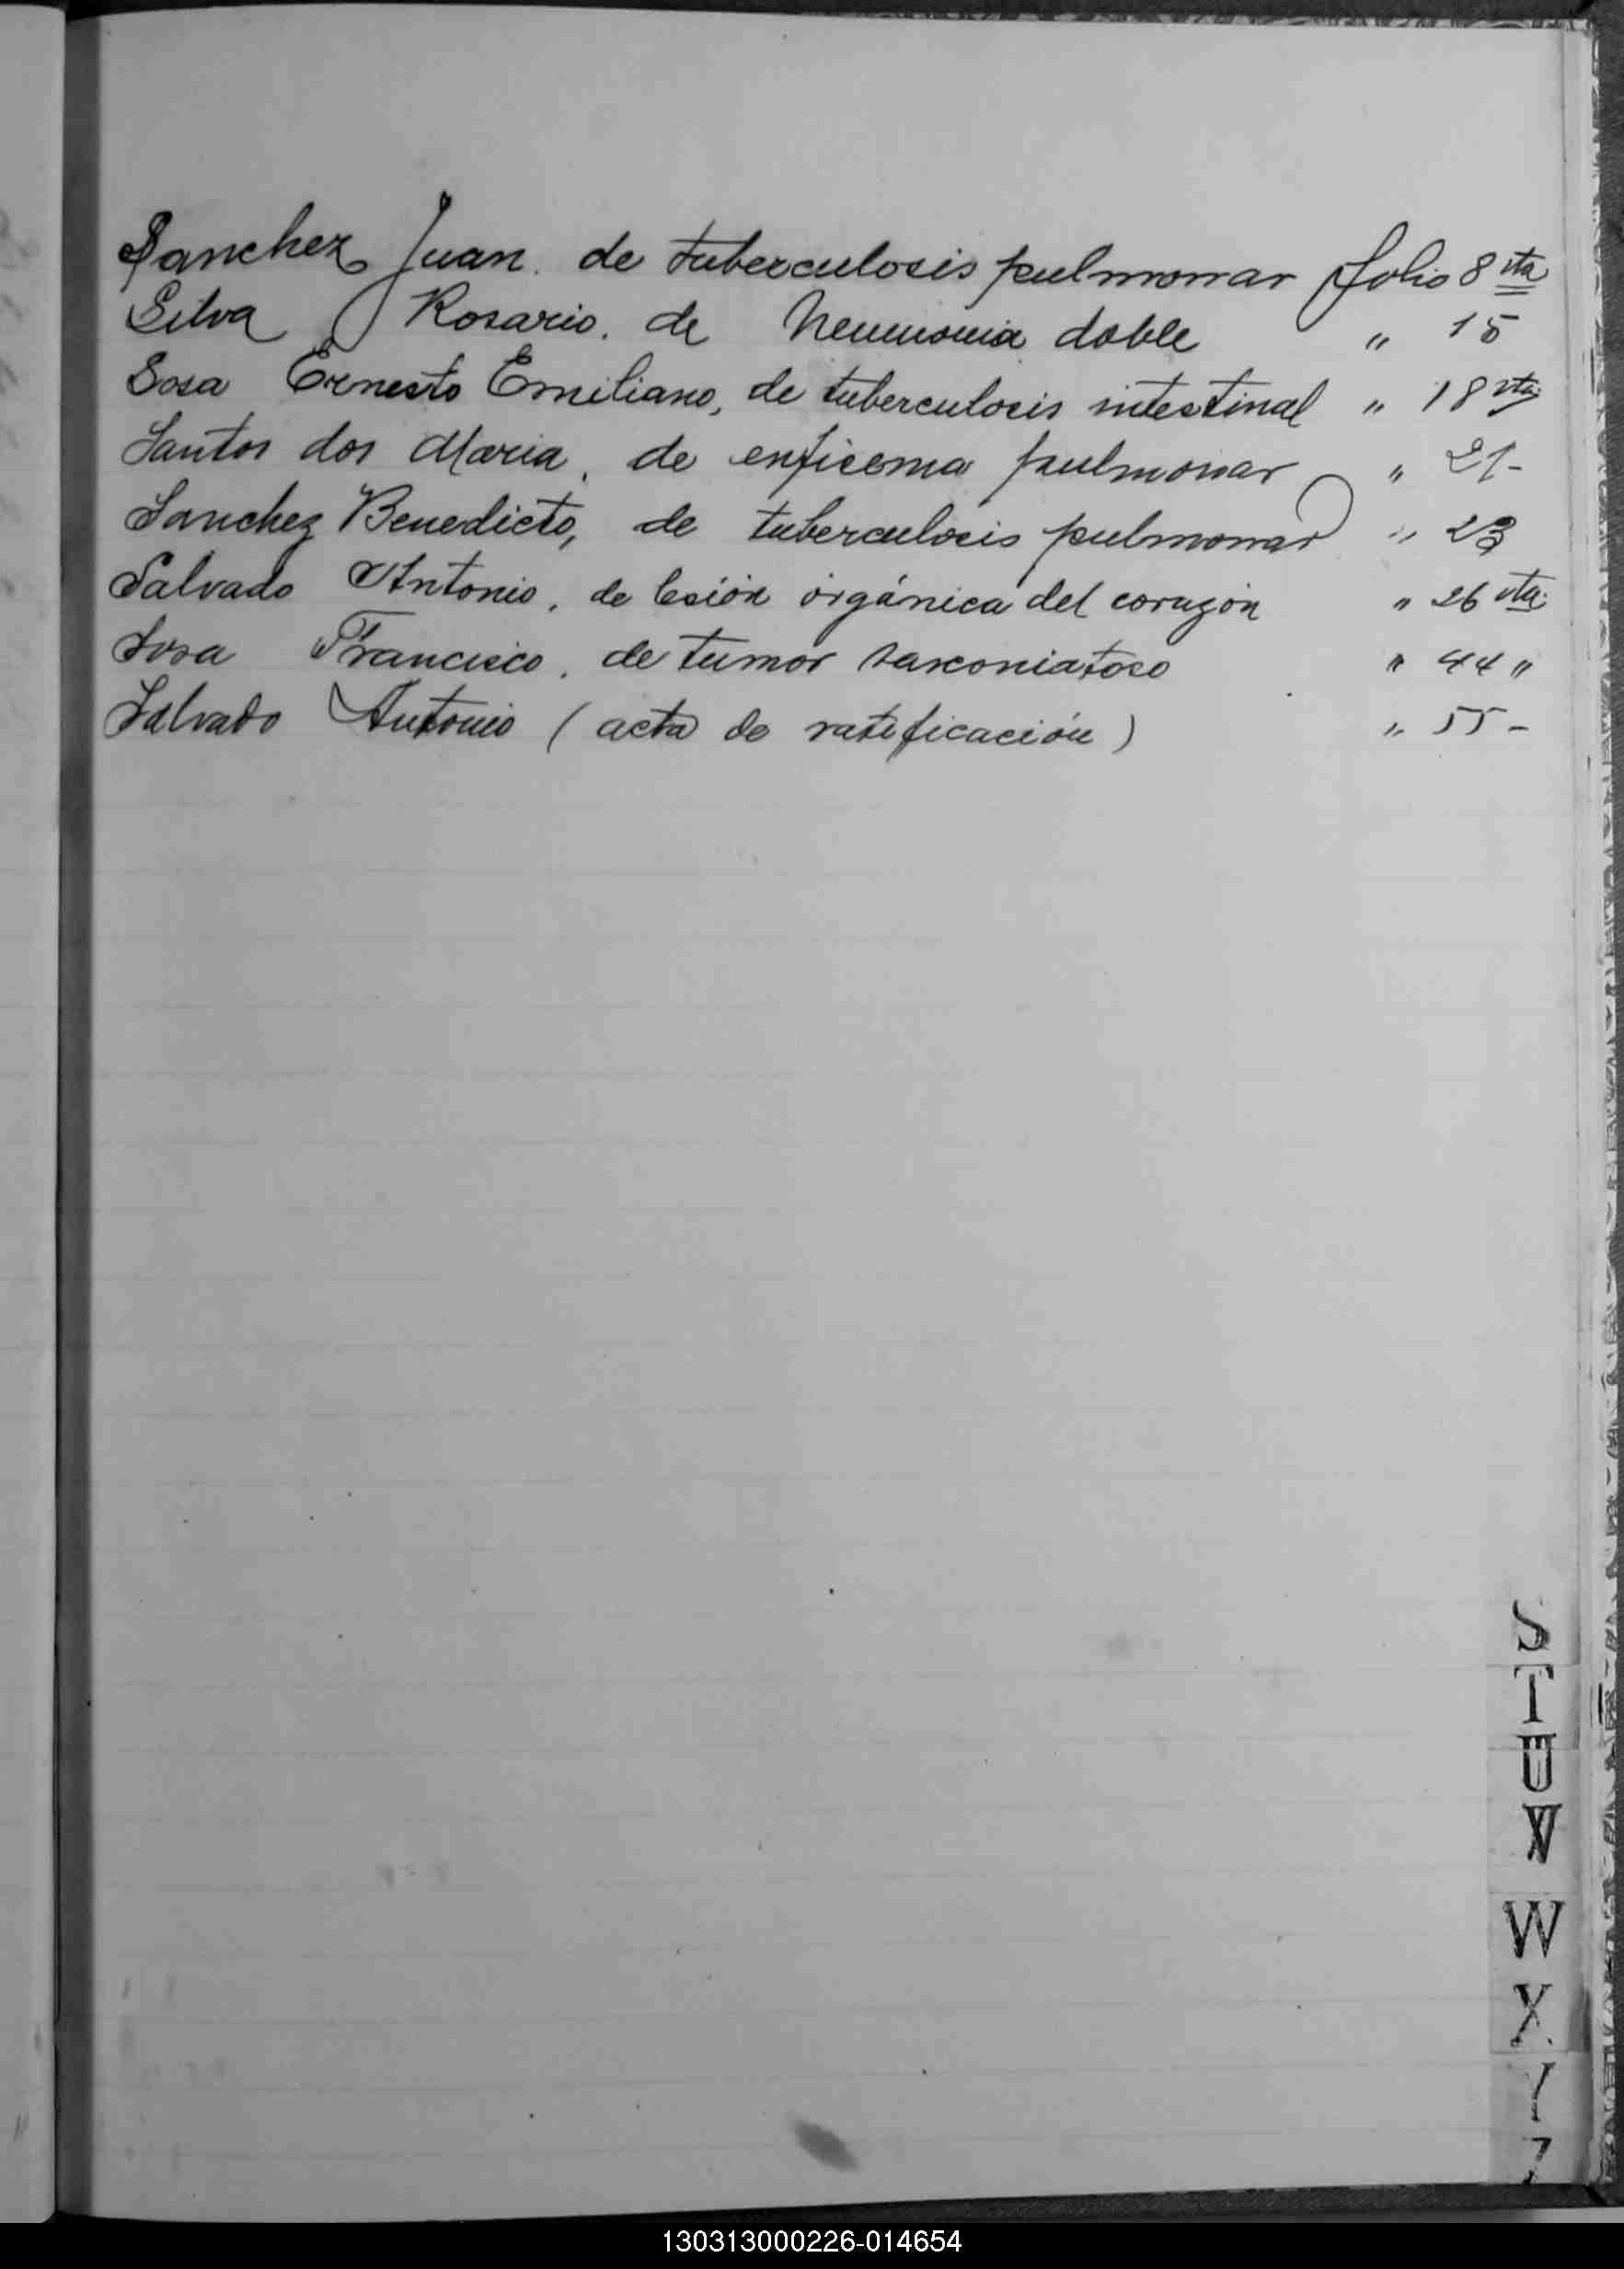 Sanchez Juan. de tuberculosis pulmonar folio 8 vta
Silva Rosario. de Neumonia doble " 15
Sosa Ernesto Emiliano, de tuberculosis intestinal " 18 vta
Santos dos Maria, de enficema pulmonar " 21-
Sanchez Benedicto, de tuberculosis pulmonar " 23
Salvado Antonio, de lesión orgánica del corazón " 26 vta
Sosa Francisco, de tumor sarcomatoso " 44 "
Salvado Antonio (acta de ratificación) " 55 -
S
T
U
V
W
X
Y
Z
130313000226-014654